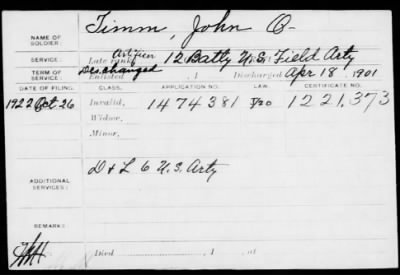 NAME OF SOLDIER: Timm, John O.
SERVICE: Late rank Artificer 12 Batty U.S. Field Arty
TERM OF SERVICE: Enlisted , 1 Discharged Apr 18, 1901
Discharged
DATE OF FILING. CLASS. APPLICATION NO. LAW. CERTIFICATE NO.
1922 Oct 26 Invalid, 1474381 1221,373
Widow,
Minor,
ADDITIONAL SERVICES: D & L 6 U.S. Arty
REMARKS:
Died , 1 , at